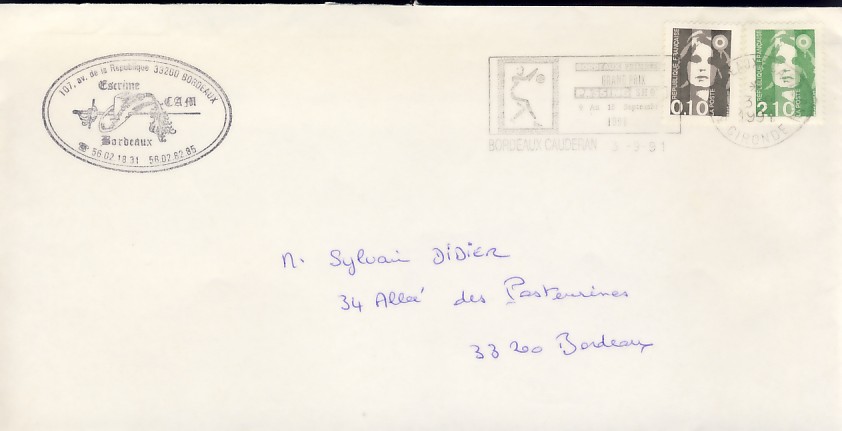 107, av. de la République 33200 BORDEAUX
Escrime
CAM
Bordeaux
56.02.18.31 56.02.62.85
GRAND PRIX
1991
BORDEAUX CAUDERAN 3-9 91
REPUBLIQUE FRANÇAISE
0,10
LA POSTE
REPUBLIQUE FRANÇAISE
2,10
LA POSTE
3
1991
GIRONDE
M. Sylvain DIDIER
34 Allée des Pasteurines
33200 Bordeaux